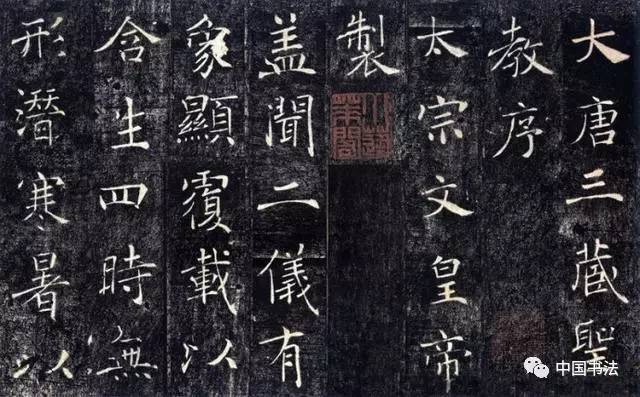 大唐三藏聖
教序
太宗文皇帝
製
盖聞二儀有
象顯覆載以
含生四時無
形潛寒暑以
小蓬萊閣
中国书法